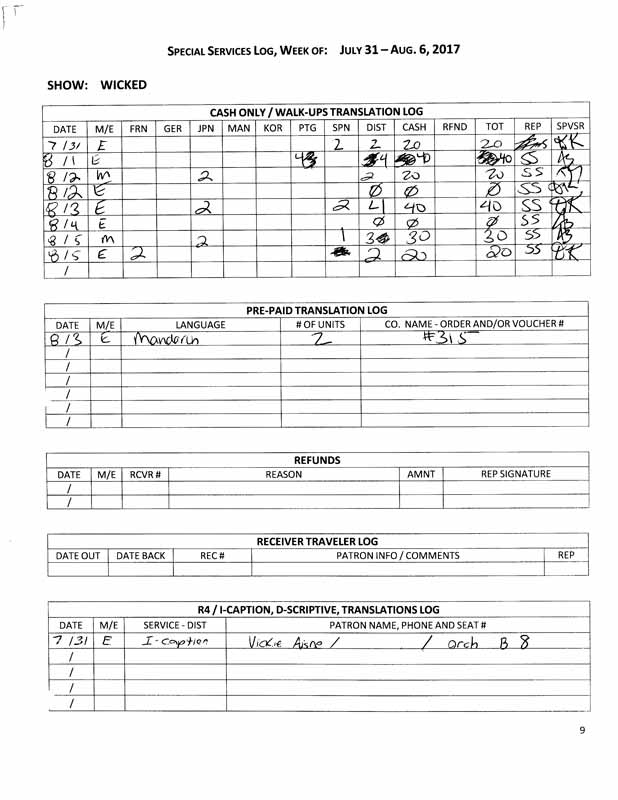 SPECIAL SERVICES LOG, WEEK OF: JULY 31 – AUG. 6, 2017
SHOW: WICKED
CASH ONLY / WALK-UPS TRANSLATION LOG
DATE M/E FRN GER JPN MAN KOR PTG SPN DIST CASH RFND TOT REP SPVSR
7 / 31 E 2 2 20 20
8 / 1 E 4 4 40 40 SS
8 / 2 M 2 2 20 20 SS
8 / 2 E Ø Ø Ø SS
8 / 3 E 2 2 4 40 40 SS
8 / 4 E Ø Ø Ø SS
8 / 5 M 2 1 3 30 30 SS
8 / 5 E 2 2 20 20 SS
/
PRE-PAID TRANSLATION LOG
DATE M/E LANGUAGE # OF UNITS CO. NAME - ORDER AND/OR VOUCHER #
8 / 3 E Manderin 2 #315
/
/
/
/
/
/
REFUNDS
DATE M/E RCVR # REASON AMNT REP SIGNATURE
/
/
RECEIVER TRAVELER LOG
DATE OUT DATE BACK REC # PATRON INFO / COMMENTS REP
R4 / I-CAPTION, D-SCRIPTIVE, TRANSLATIONS LOG
DATE M/E SERVICE - DIST PATRON NAME, PHONE AND SEAT #
7 / 31 E I-caption Vickie Aisne / / orch B 8
/
/
/
/
9